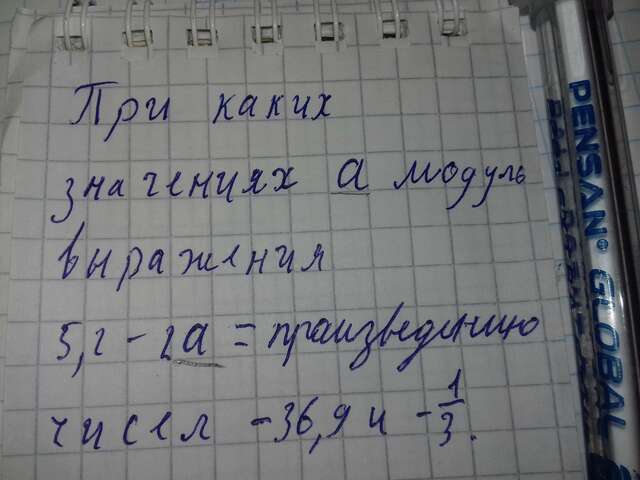 При каких
значениях а модуль
выражения
5,2 - 2а = произведению
чисел -36,9 и -1/3.
PENSAN® GLOBAL